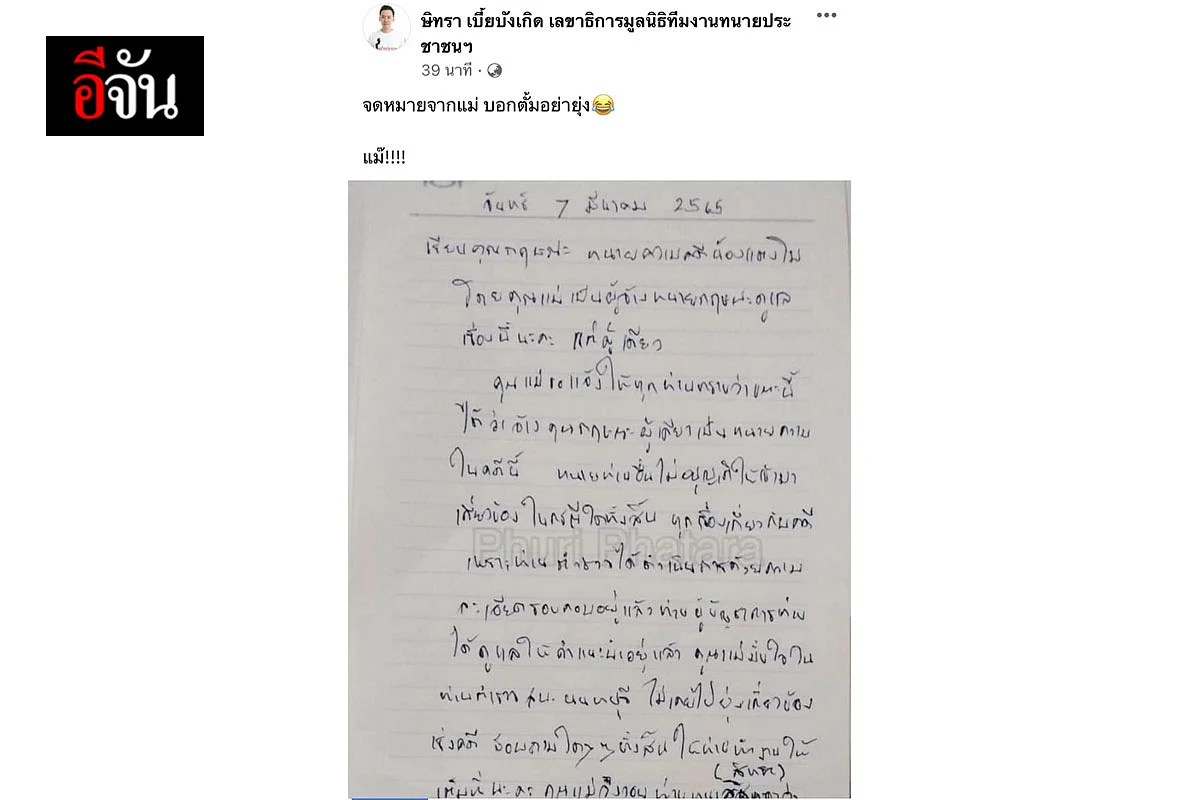 อีจัน
ษิทรา เบี้ยบังเกิด เลขาธิการมูลนิธิทีมงานทนายประ
ชาชนฯ
39 นาที
จดหมายจากแม่ บอกตั้มอย่ายุ่ง😂
แม๊!!!!
จันทร์ 7 มีนาคม 2565
เรียนคุณกฤษณะ ทนายความคดีน้องแตงโม
โดยคุณแม่เป็นผู้จ้างทนายกฤษณะดูแล
เรื่องนี้นะคะ แต่ผู้เดียว
คุณแม่ขอแจ้งให้ทุกท่านทราบว่าขณะนี้
ได้ว่าจ้างคุณกฤษณะผู้เดียวเป็นทนายความ
ในคดีนี้ ทนายท่านอื่นไม่อนุญาติให้เข้ามา
เกี่ยวข้องในกรณีใดทั้งสิ้น ทุกเรื่องเกี่ยวกับคดี
Phuri Phatara
เพราะท่านตำรวจได้ดำเนินการด้วยความ
ละเอียดรอบคอบอยู่แล้ว ท่านผู้บัญชาการท่าน
ได้ดูแลให้คำแนะนำอยู่แล้ว คุณแม่มั่นใจใน
ท่านตำรวจ นนทบุรี ไม่เคยไปยุ่งเกี่ยวข้อง
เรื่องคดี สอบถามใดๆทั้งสิ้น ให้ท่านทำงานให้
(สิทธา)
เต็มที่นะคะ คุณแม่จึง